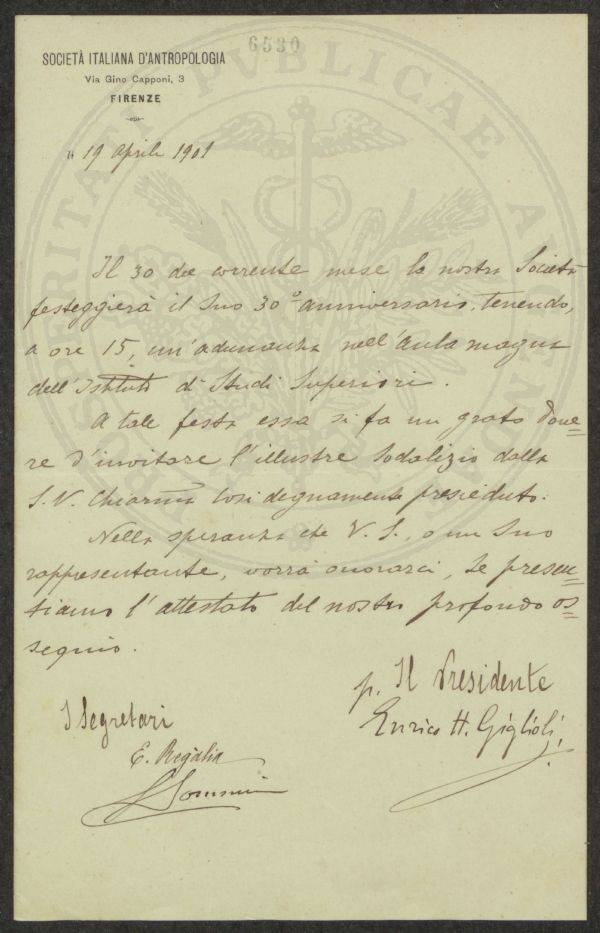 6530
SOCIETÀ ITALIANA D'ANTROPOLOGIA
Via Gino Capponi, 3
FIRENZE
19 Aprile 1901
Il 30 del corrente mese la nostra Società
festeggierà il suo 30° anniversario, tenendo,
a ore 15, un'adunanza nell'Aula magna
dell'Istituto di Studi Superiori.
A tale festa essa si fa un grato dove=
re d'invitare l'illustre Sodalizio dalla
S. V. Chiarma così degnamente presieduto.
Nella speranza che V. S., o un Suo
rappresentante, vorrà onorarci, Le presen=
tiamo l'attestato del nostro profondo os=
sequio.
p. Il Presidente
Enrico H. Giglioli
I Segretari
E. Regàlia
S Sommier